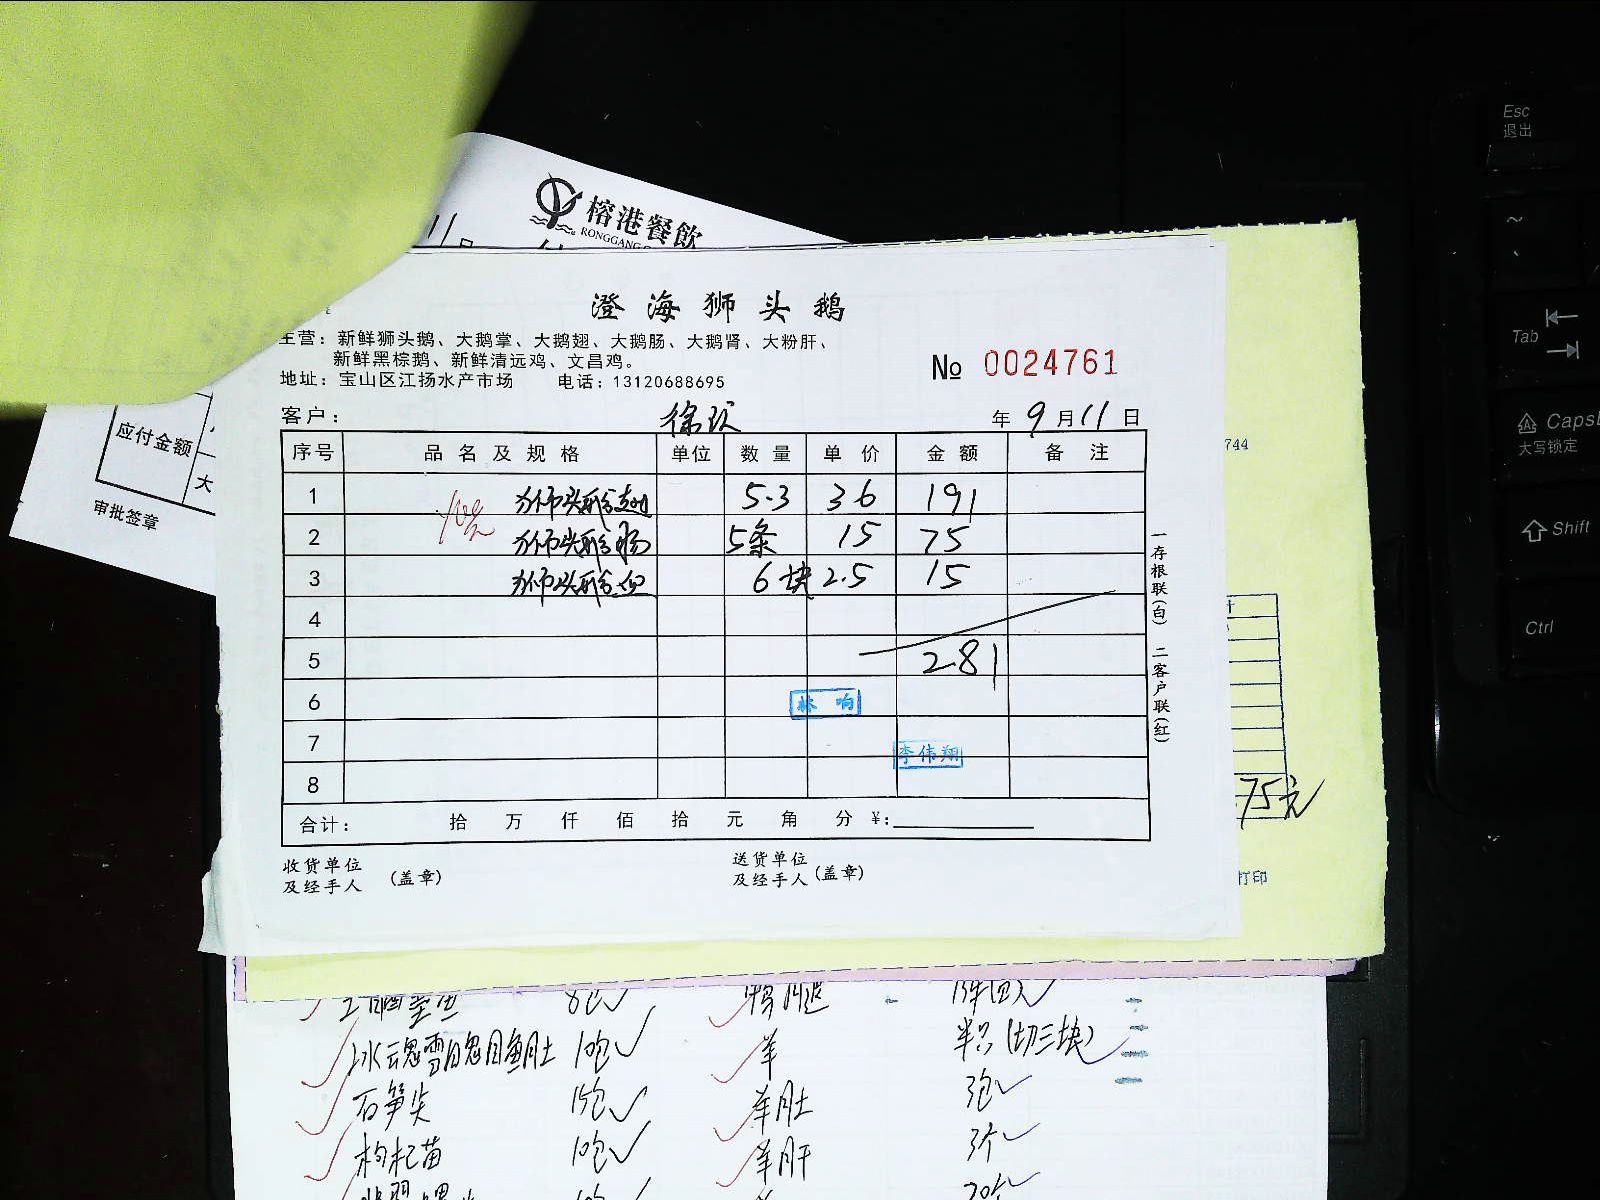 榕港餐飲
RONGGANG
应付金额
大
审批签章
澄海狮头鹅
主营：新鲜狮头鹅、大鹅掌、大鹅翅、大鹅肠、大鹅肾、大粉肝、
新鲜黑棕鹅、新鲜清远鸡、文昌鸡。
地址：宝山区江扬水产市场 电话：13120688695
№ 0024761
客户： 年 9 月 11 日
序号 品名及规格 单位 数量 单价 金额 备注
1 狮头鹅翅 5.3 36 191
2 狮头鹅肠 5条 15 75
3 狮头鹅血 6块 2.5 15
4
5 281
6 林响
7 李伟翔
8
合计： 拾 万 仟 佰 拾 元 角 分 ¥：
收货单位
及经手人 （盖章）
送货单位
及经手人 （盖章）
一存根联（白） 二客户联（红）
744
计
75元
打印
10包 羊 半只（切三块）
石笋尖 15包 羊肚 3包
枸杞苗 10包 羊肝 3个
Esc
退出
~
Tab
Caps
大写锁定
Shift
Ctrl